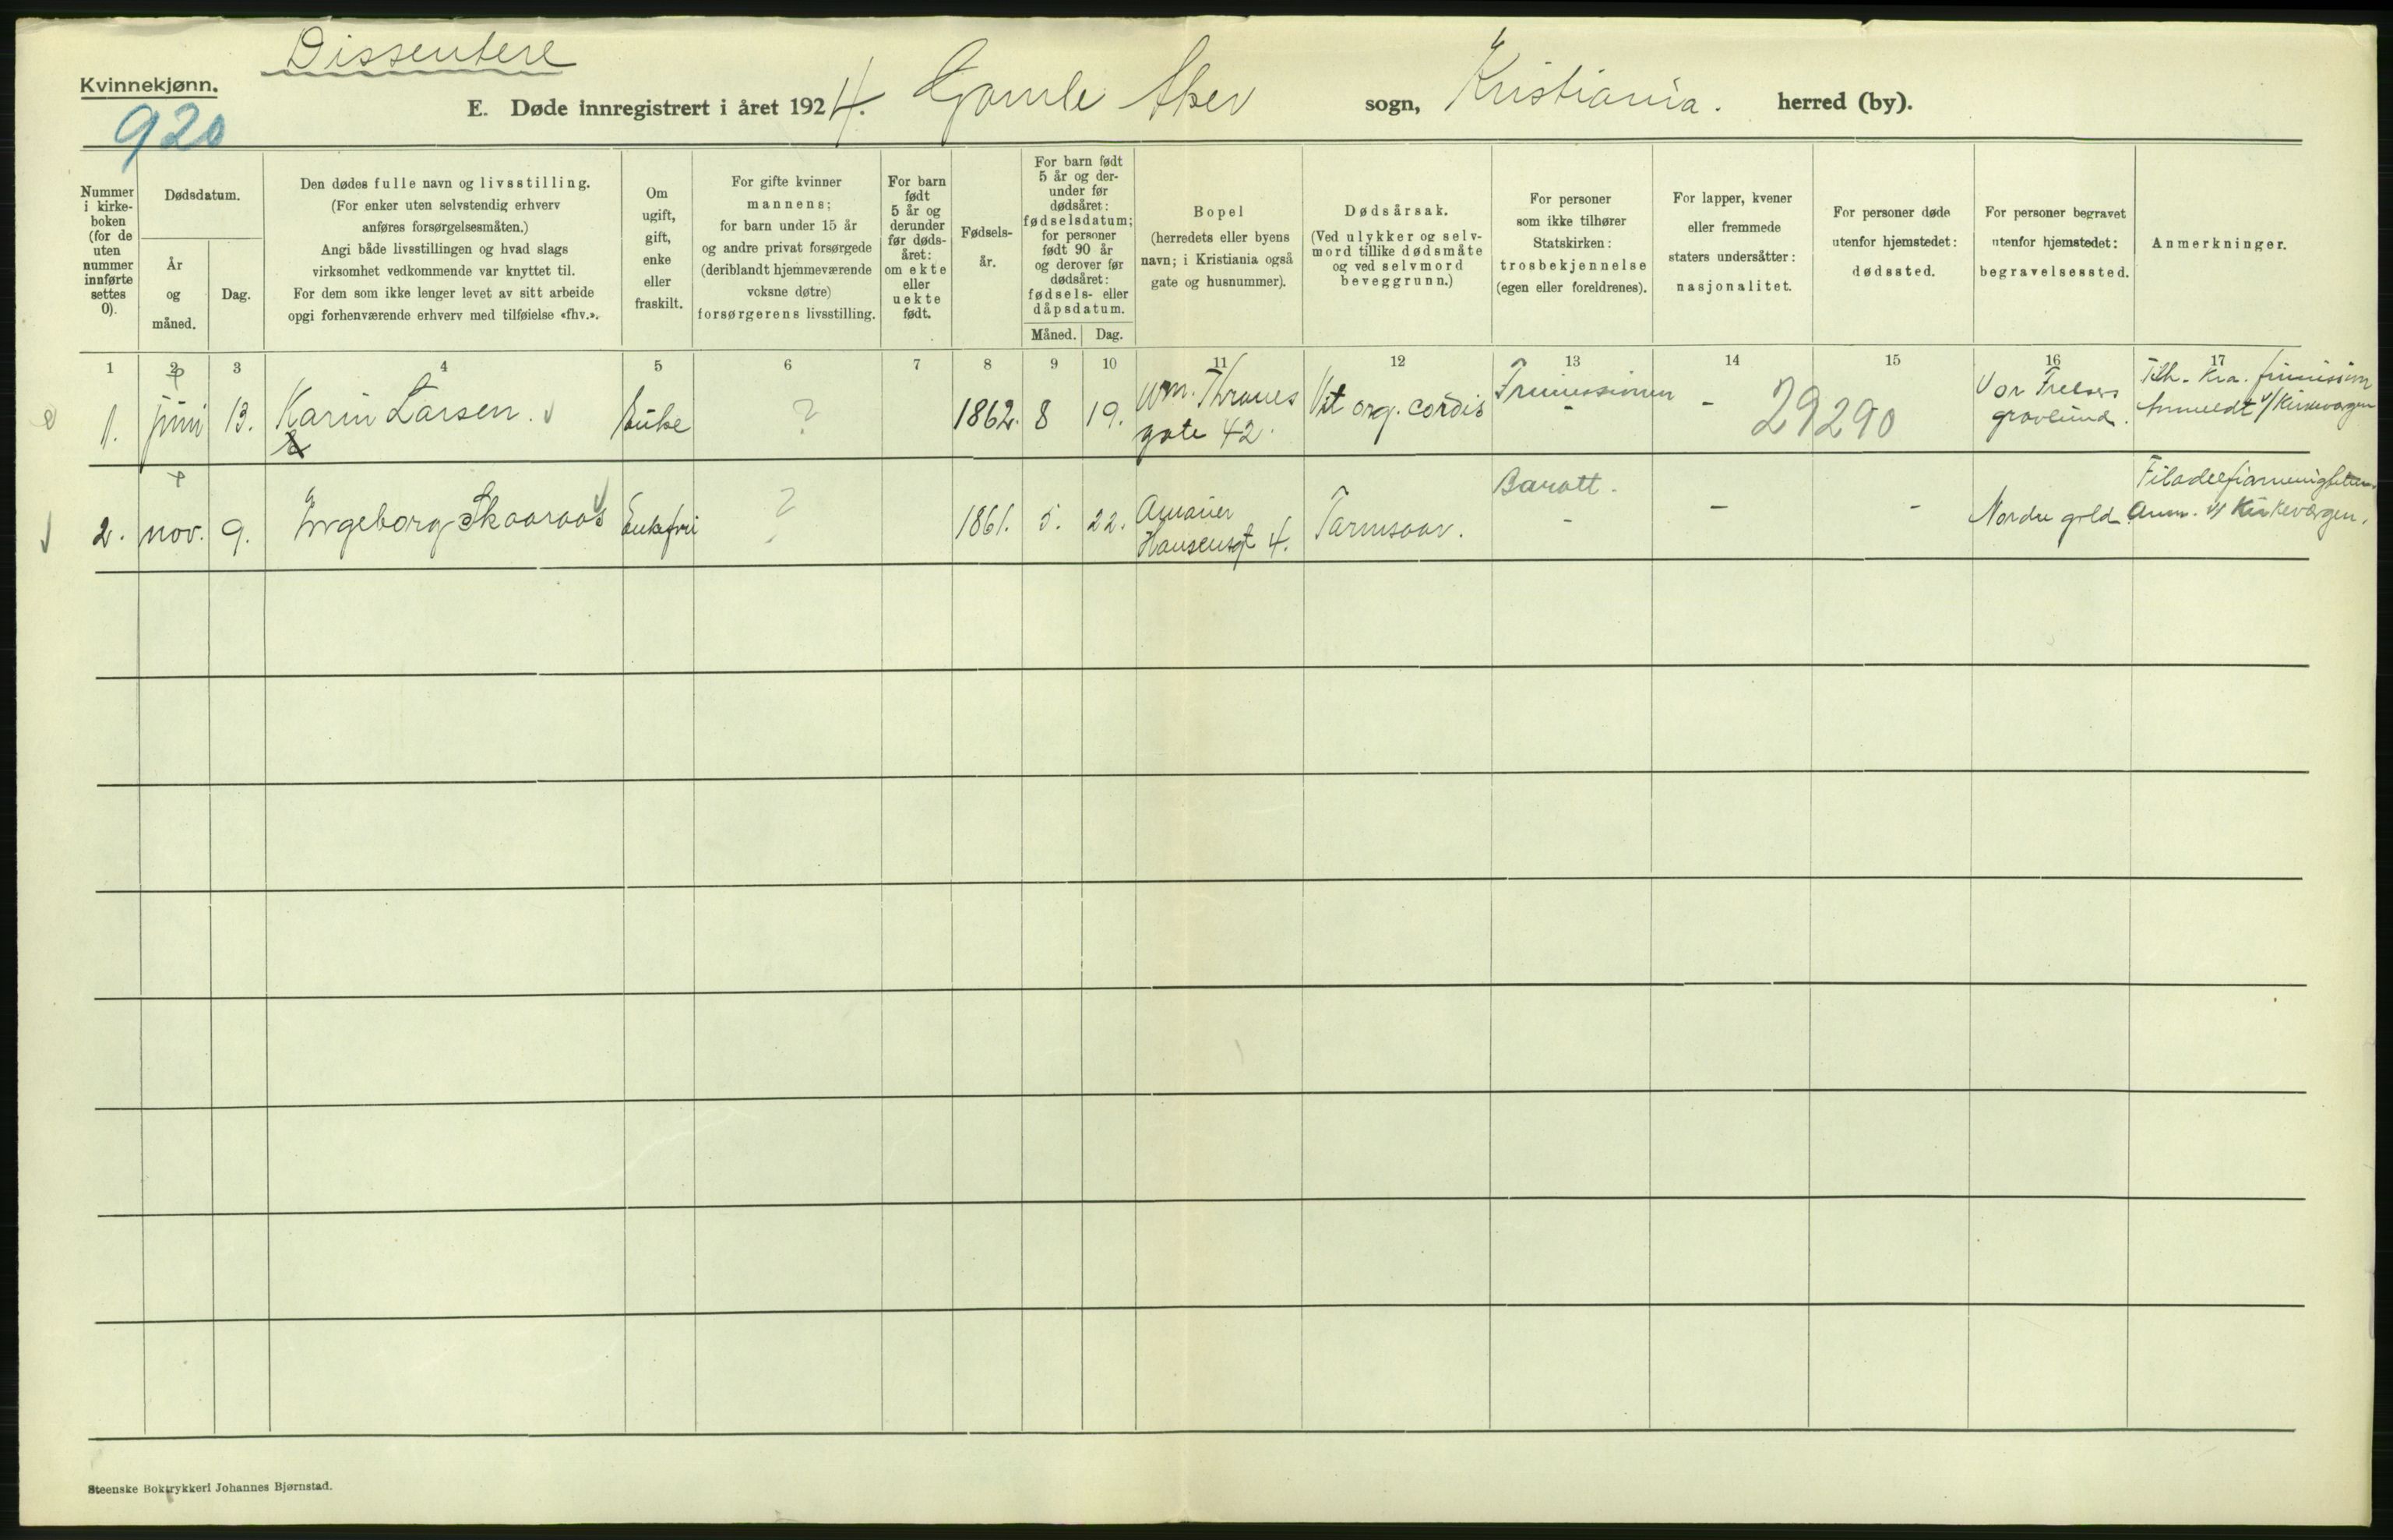 Dissentere
Kvinnekjønn.
920
E. Døde innregistrert i året 1924. Gamle Aker sogn, Kristiania. herred (by).
Nummer
i kirke-
boken
(for de
uten
nummer
innførte
settes
0).
Dødsdatum.
År
og
måned.
Dag.
Den dødes fulle navn og livsstilling.
(For enker uten selvstendig erhverv
anføres forsørgelsesmåten.)
Angi både livsstillingen og hvad slags
virksomhet vedkommende var knyttet til.
For dem som ikke lenger levet av sitt arbeide
opgi forhenværende erhverv med tilføielse «fhv.».
Om
ugift,
gift,
enke
eller
fraskilt.
For gifte kvinner
mannens;
for barn under 15 år
og andre privat forsørgede
(deriblandt hjemmeværende
voksne døtre)
forsørgerens livsstilling.
For barn
født
5 år og
derunder
før døds-
året:
om ekte
eller
uekte
født.
Fødsels-
år.
For barn født
5 år og der-
under før
dødsåret:
fødselsdatum;
for personer
født 90 år
og derover før
dødsåret:
fødsels- eller
dåpsdatum.
Måned.
Dag.
Bopel
(herredets eller byens
navn; i Kristiania også
gate og husnummer).
Dødsårsak.
(Ved ulykker og selv-
mord tillike dødsmåte
og ved selvmord
beveggrunn.)
For personer
som ikke tilhører
Statskirken:
trosbekjennelse
(egen eller foreldrenes).
For lapper, kvener
eller fremmede
staters undersåtter:
nasjonalitet.
For personer døde
utenfor hjemstedet:
dødssted.
For personer begravet
utenfor hjemstedet:
begravelsessted.
Anmerkninger.
1 2 3 4 5 6 7 8 9 10 11 12 13 14 15 16 17
1. juni 13. Karin Larsen. Enke ? 1862. 8 19.
Wm. Thranes
gate 42.
Vit org. cordis
Frimissionen
-
-
29290
Vor Frelsers
gravlund.
Tilh. Kra. frimission
Anmeldt v/ Kirkevergen
2. nov. 9. Ingeborg Skaaraas Enkefru ? 1861. 5. 22.
Hansensgt 4.
Tarmsaar.
-
-
-
Nordre grld.
Anm. v/ Kirkevergen.
Steenske Boktrykkeri Johannes Bjørnstad.